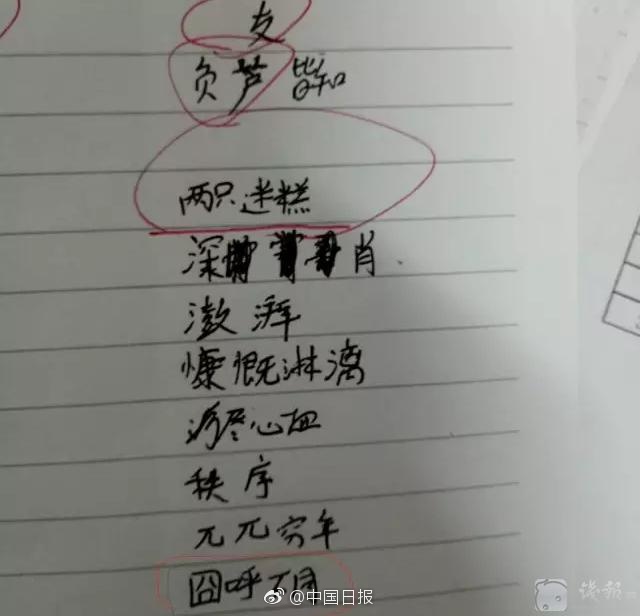 友
负芦皆知
两只迷糕
深 肖
澎湃
慷慨淋漓
沥尽心血
秩序
兀兀穷年
囧呼不同
@中国日报
钱报